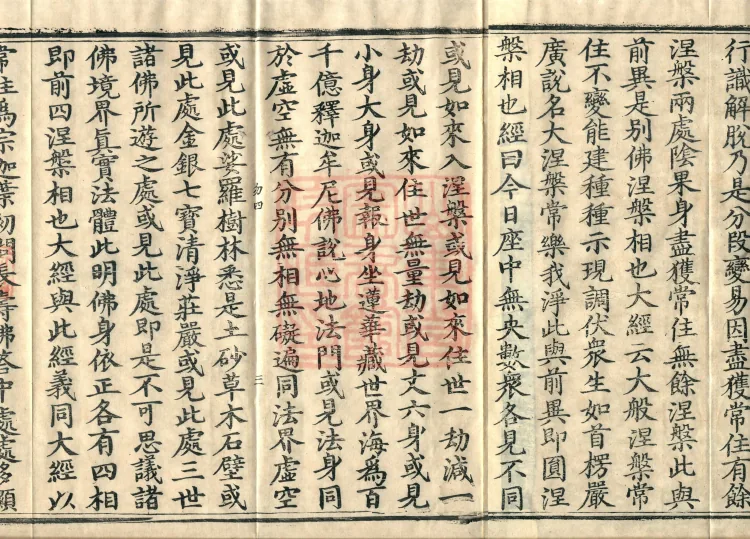 行識解脫乃是分段變易因盡獲常住有餘
涅槃兩處陰果身盡獲常住無餘涅槃此與
前異是別佛涅槃相也大經云大般涅槃常
住不變能建種種示現調伏衆生如首楞嚴
廣說名大涅槃常樂我淨此與前異即圓涅
槃相也經曰今日座中無央數衆各見不同
或見如來入涅槃或見如來住世一劫減一
劫或見如來住世無量劫或見丈六身或見
小身大身或見報身坐蓮華藏世界海為百
千億釋迦牟尼佛說心地法門或見法身同
於虛空無有分別無相無礙遍同法界虛空
或見此處娑羅樹林悉是土砂草木石壁或
見此處金銀七寶清淨莊嚴或見此處三世
諸佛所遊之處或見此處即是不可思議諸
佛境界真實法體此明佛身依正各有四相
即前四涅槃相也大經與此經義同大經以
常住為宗迦葉初問長壽佛答中處處多顯